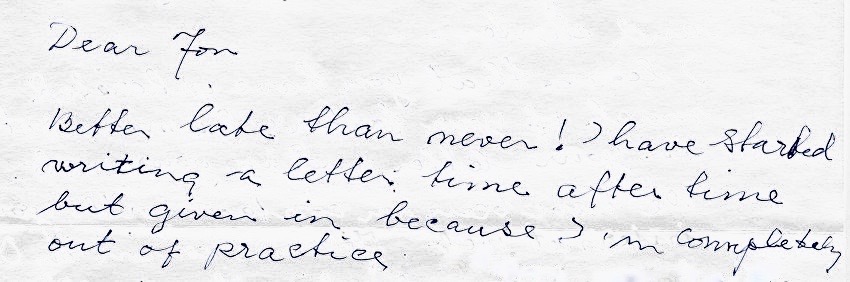 Dear Jon
Better late than never! I have started
writing a letter time after time
but given in because I'm completely
out of practice.